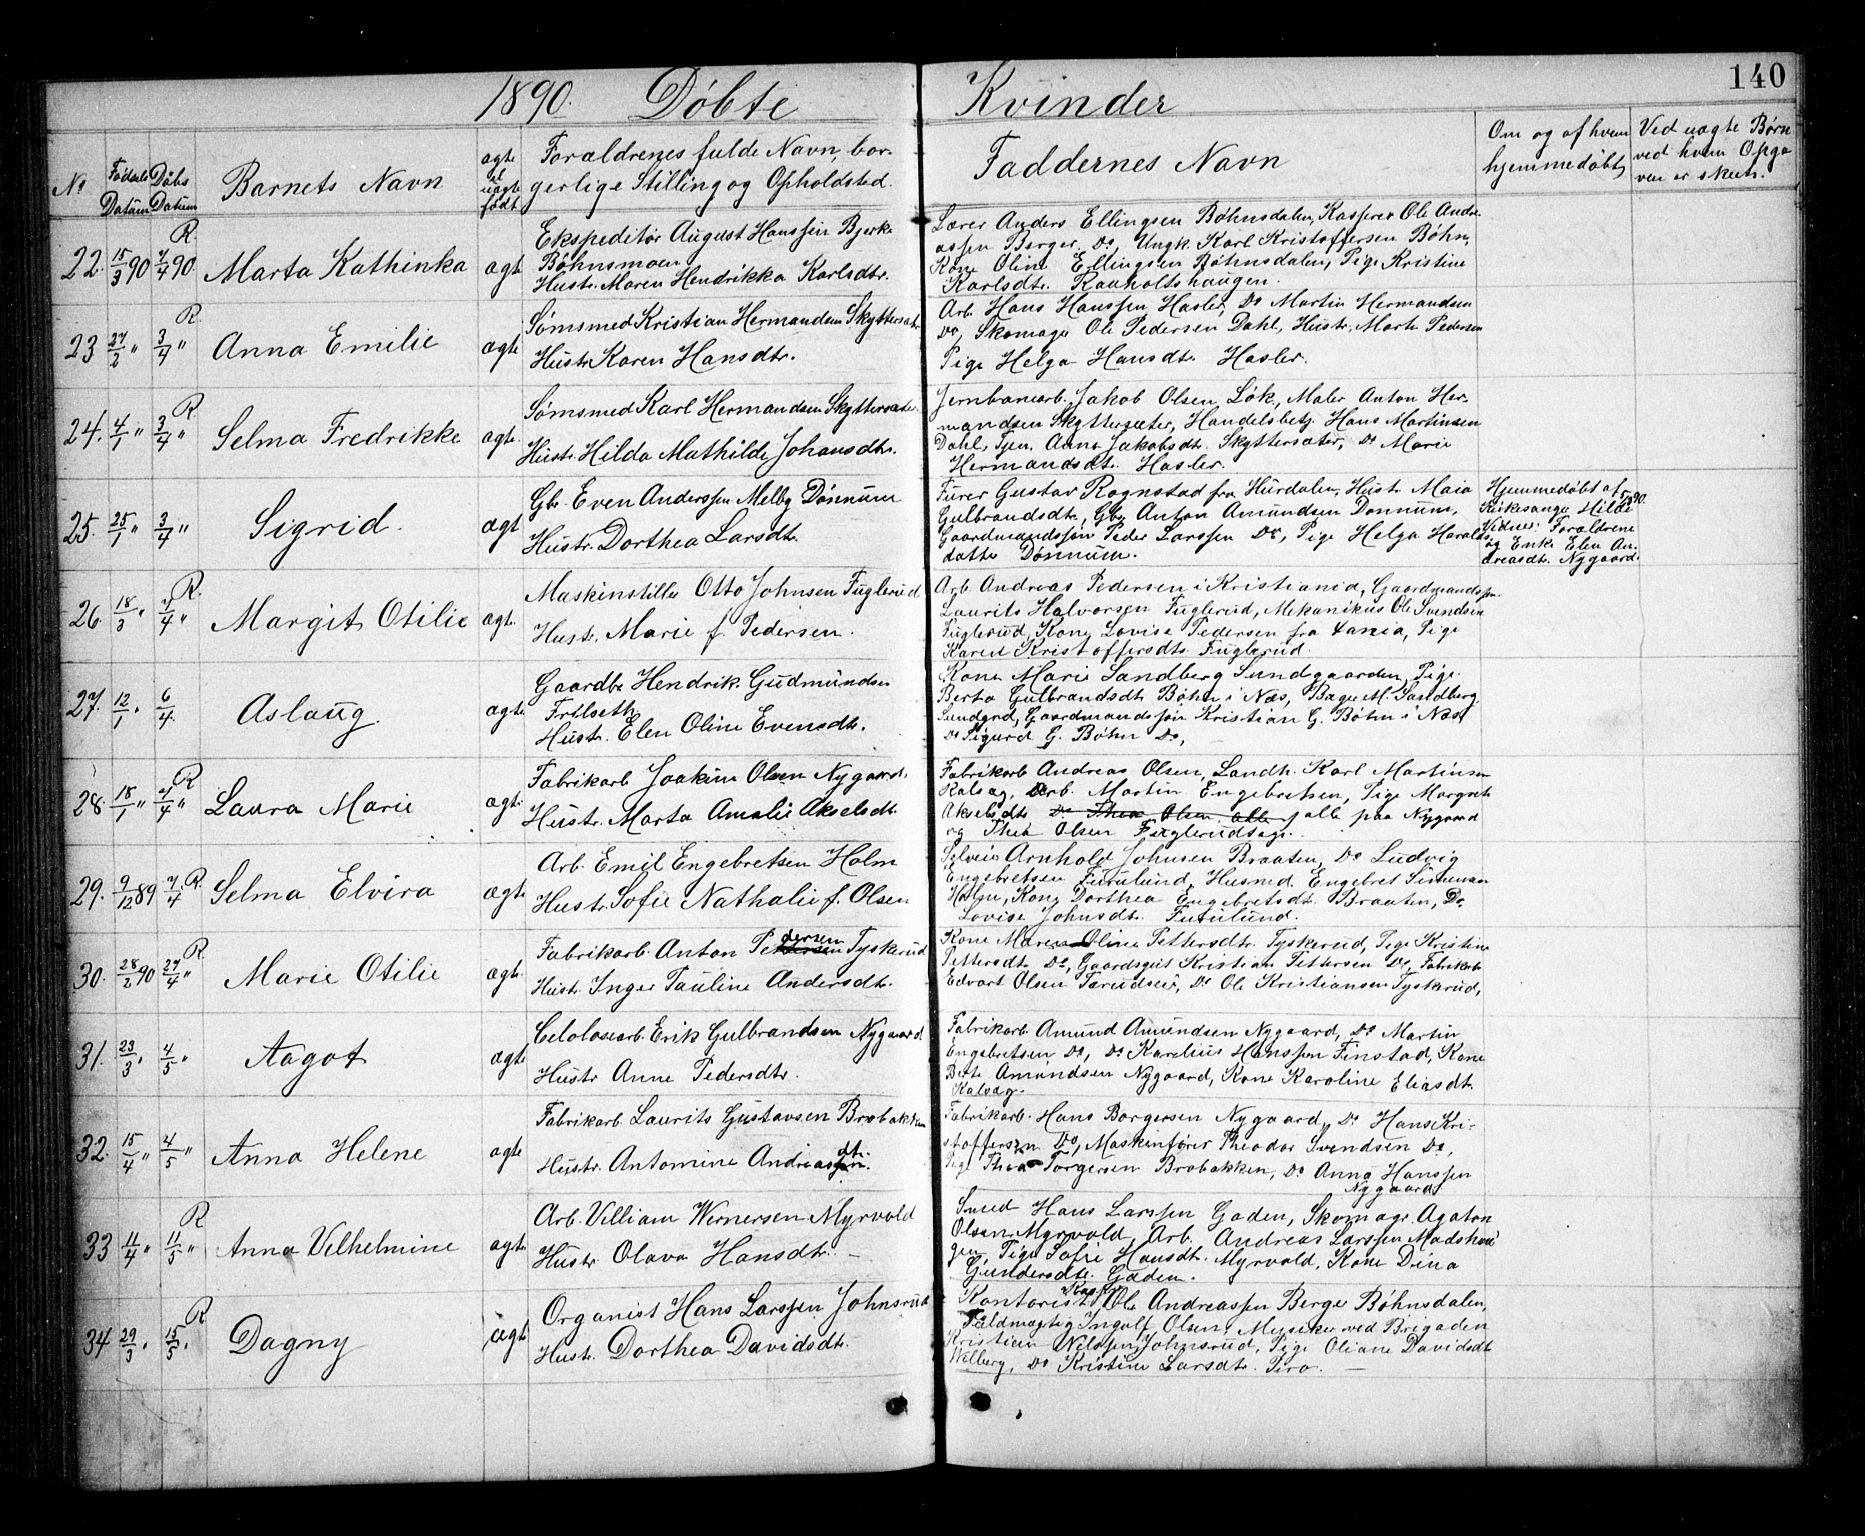 140
1890. Døbte Kvinder
No Fødsels Datum Døbs Datum Barnets Navn ægte el uægte født Forældrenes fulde Navn, bor-
gerlige Stilling og Opholdsted.
Faddernes Navn
Om og af hvem
hjemmedøbt
Ved uægte Børn
ved hvem Opga
ven er skeet.
22. 15/3 90 7/4 90. R. Marta Kathinka ægt
Ekspeditør August Hanssen Bjerke
Bøhnsmoen
Hustr. Maren Hendrikka Karlsdtr.
Lærer Anders Ellingsen Bøhnsdalen, Kasserer Ole Andre
assen Berger Do, Ungk. Karl Kristoffersen Bøhn,
Kone Oline Ellingsen Bøhnsdalen, Pige Kristine
Karlsdtr. Raaholtshaugen.
23 27/2 " 3/4 " R. Anna Emilie ægte
Sømsmed Kristian Hermandsen Skyttersæter
Hustr. Karen Hansdtr.
Arb. Hans Hanssen Hasler, Do Martin Hermandsen
Do, Skomager Ole Pedersen Dahl, Hustr. Marte Pedersen
Pige Helga Hansdtr. Hasler.
24. 4/1 " 3/4 " R Selma Fredrikke ægte.
Sømsmed Karl Hermandsen Skyttersæter.
Hustr. Hilda Mathilde Johansdtr.
Jernbanearb. Jakob Olsen Løk, Maler Anton Her-
mandsen Skyttersæter, Handelsbetj. Hans Martinsen
Dahl, Tjen. Anna Jakobsdt. Skyttersæter, Do Marie
Hermandsdt. Hasler.
25. 25/1 " 3/4 " Sigrid. ægt
Gbr. Even Anderssen Melby Dønnum
Hustr. Dorthea Larsdtr.
Furer Gustav Rognstad fra Hurdalen, Hustr. Maia
Gulbrandsdtr, Gbr. Anton Amundsen Dønnum,
Gaardmandssøn Peder Larssen Do, Pige Helga Haralds
datter Dønnum.
Hjemmedøbt af 90.
Kirkesanger Hilde
Vidner: Forældrene
og Enke Elen An-
dreasdtr. Nygaard.
26. 18/3 " 7/4 " R. Margit Otilie ægt.
Maskinstiller Otto Johnsen Fuglerud
Hustr. Marie f. Pedersen.
Arb. Andreas Pedersen i Kristiania, Gaardmandssøn
Laurits Halvorsen Fuglerud, Mekanikus Ole Svendsen
Fuglerud, Kone Lovise Pedersen fra Xania, Pige
Karen Kristoffersdtr. Fuglerud.
27. 12/1 " 6/4. Aslaug. ægte.
Gaardbr. Hendrik Gudmundsen
Frilseth
Hustr. Elen Oline Evensdtr.
Kone Marie Sandberg Sundgaarden, Pige
Berta Gulbrandsdt. Bøhn i Næs, Bager M. Sandberg
Sundgrd, Gaardmandssøn Kristian G. Bøhn i Næs
Do Sigurd G. Bøhn Do,
28. 18/1 " 7/4 " R Laura Marie ægt.
Fabrikarb. Joakim Olsen Nygaard,
Hustr. Marta Amalie Akselsdtr.
Fabrikarb. Andreas Olsen, Landh. Karl Martinsen
Ralsag, Arb. Martin Engebretsen, Pige Margrete
Akselsdtr Do Thea Olsen, alle, alle paa Nygaard
og Thea Olsen Fuglerudsag.
29. 9/12 89 7/4 R. Selma Elvira ægte
Arb. Emil Engebretsen Holm
Hustr. Sofie Nathalie f. Olsen
Selveier Arnhold Johnsen Braaten, Do Ludvig
Engebretsen Furulund, Husmd. Engebret Simensen
Holm, Kone Dorthea Engebretsdt. Braaten, Do
Lovise Johnsdtr. Furulund.
30. 28/2 90 27/4 " R Marie Otilie ægte.
Fabrikarb. Anton Pedersen Tyskerud
Hustr. Inger Pauline Andersdtr.
Kone Maren Oline Pettersdtr. Tyskerud, Pige Kristine
Pettersdtr. Do, Gaardsgut Kristian Pettersen Do, Fabrikarb.
Edvart Olsen Tærudseie, Do Ole Kristiansen Tyskerud,
31. 23/3 " 4/5 " Aagot ægte
Celolosearb. Erik Gulbrandsen Nygaard
Hustr. Anne Pedersdtr.
Fabrikarb. Amund Amundsen Nygaard, Do Martin
Engebretsen Do, Do Karelius Hanssen Finstad, Kone
Berte Amundsen Nygaard, Kone Karoline Eliasdtr.
Kalsag.
32. 15/4 " 4/5 " Anna Helene ægte
Fabrikarb. Laurits Gustavsen Brobakken
Hustr. Antomine Andreasdtr.
Fabrikarb. Hans Borgersen Nygaard, Do Hans Kri-
stoffersen Do, Maskinfører Theodor Svendsen Do,
Pige Thea Torgersen Brobakken, Do Anna Hanssen
Nygaard
33 11/4 " 11/5 " R Anna Vilhelmine ægte
Arb. Villiam Wernersen Myrvold
Hustr. Olava Hansdtr. —
Smed Hans Larssen Gaden, Skomagr. Agaton
Olsen Myrvold, Arb. Andreas Larssen Madshau
gen, Pige Sofie Hansdt. Myrvold, Kone Dina
Gundersdtr. Gaden.
34 29/3 " 15/5 " R Dagny ægt
Organist Hans Larssen Johnsrud
Hustr. Dorthea Davidsdtr.
Kontorist Ole Andreassen Berger Bøhnsdalen,
Fuldmægtig Ingolf Olsen, Musiker ved Brigaden
Kristian Nilssen Johnsrud, Pige Oliane Davidsdt
Wilberg, Do Kristine Larsdtr. Piro. —